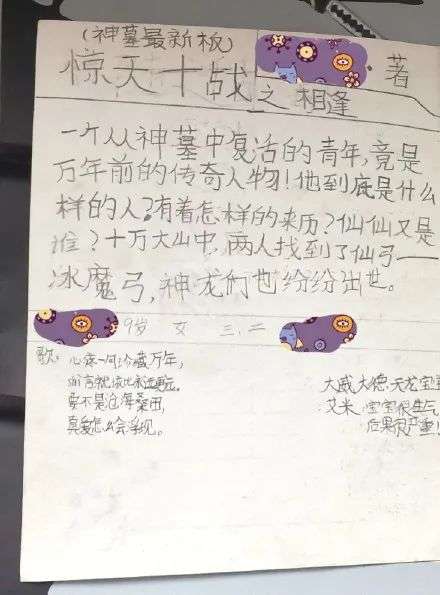 (神墓最新板)
惊天十战之相逢 · 著
一个从神墓中复活的青年,竟是
万年前的传奇人物!他到底是什么
样的人?有着怎样的来历?仙仙又是
谁?十万大山中,两人找到了仙弓——
冰魔弓,神龙们也纷纷出世。
9岁 女 三、二
歌: 心疼一何冷藏万年,
要不是沧海桑田,
真爱怎么会浮现。
大威大德天龙宝
艾米 宝宝很生气
后果很严重!